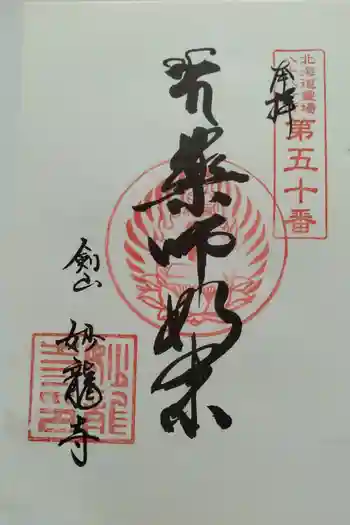 奉拝
北海道霊場
八十八ヶ所
第五十番
薬師如来
剣山 妙龍寺
妙龍